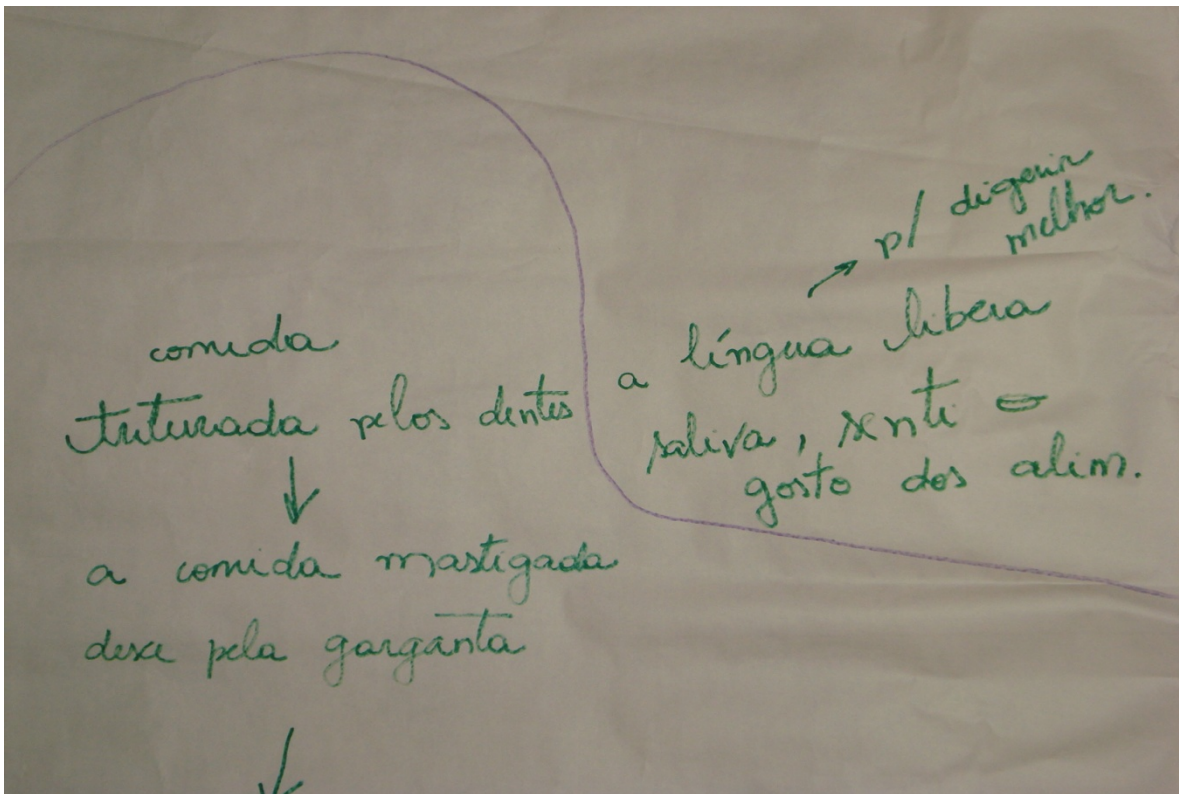 comida
triturada pelos dentes
↓
a comida mastigada
desce pela garganta
↓
→ p/ digerir
melhor.
a língua libera
saliva, senti o
gosto dos alim.